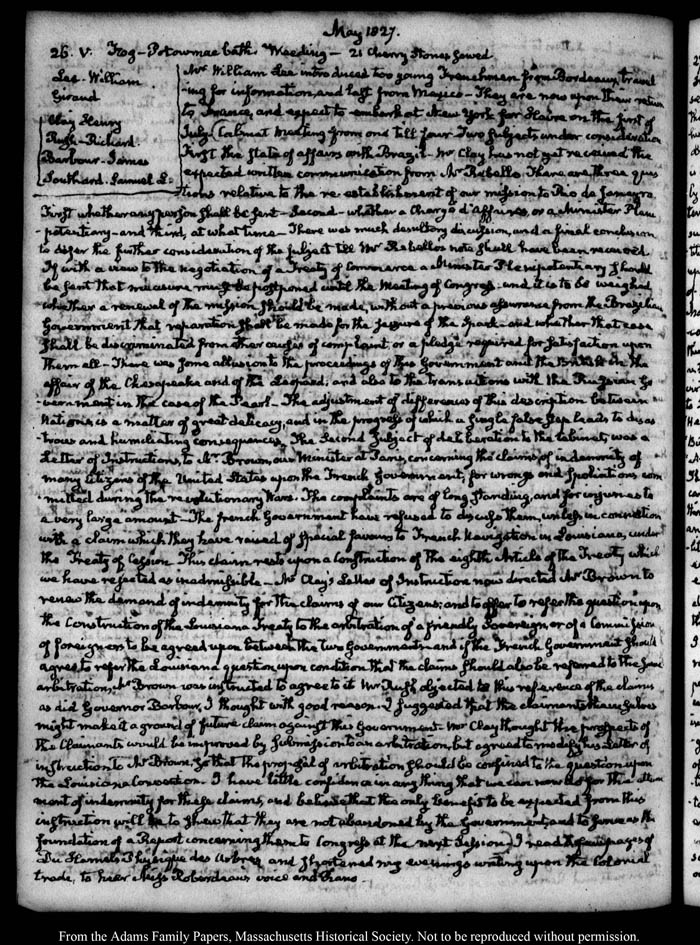 May 1827.
26. V. Fog - Potowmac bath. Weeding - 21 Cherry Stones sowed
Lee - William
Giraud
Clay Henry
Rush - Richard.
Barbour - James
Southard. Samuel L.
Mr William Lee introduced two young Frenchmen from Bordeaux, travel
-ing for information, and last from Mexico - They are now upon their return
to France, and expect to embark at New York for Havre on the first of
July. Cabinet Meeting from one till four. Two subjects under consideration
First the State of affairs with Brazil - Mr Clay has not yet received the
expected written communication from Mr Rebello. There are three ques
tions relative to the re-establishment of our mission to Rio de Janeyro.
First whether any person shall be sent - Second - whether a Chargé d'affaires, or a Minister Pleni
-potentiary - and third, at what time - There was much desultory discussion, and a final conclusion
to defer the further consideration of the subject till Mr Rebello's note shall have been received
If with a view to the negotiation of a Treaty of Commerce a Minister Plenipotentiary should
be sent that measure must be postponed until the Meeting of Congress - and it is to be weighed
whether a renewal of the mission should be made, without a previous assurance from the Brazilian
Government that reparation shall be made for the seizure of the Spark - and whether that case
shall be discriminated from other causes of complaint, or a pledge required for satisfaction upon
them all - There was some allusion to the proceedings of this Government and the British in the
affair of the Chesapeake and of the Leopard; and also to the transactions with the Russian Go
-vernment in the case of the Pearl - The adjustment of differences of this description between
Nations, is a matter of great delicacy, and in the progress of which a single false step leads to disas
trous and humiliating consequences. The second subject of deliberation to the Cabinet, was a
Letter of Instructions, to Mr Brown, our Minister at Paris, concerning the claims of indemnity of
many Citizens of the United States upon the French Government, for wrongs and spoliations com
-mitted during the revolutionary Wars. The complaints are of long standing, and for              to
a very large amount - The French Government have refused to discuss them, unless in connection
with a claim which they have raised of special favours to French Navigation in Louisiana, under
the Treaty of Cession. This claim rests upon a construction of the eighth Article of the Treaty which
we have rejected as inadmissible - Mr Clay's Letter of Instruction now directed Mr Brown to
renew the demand of indemnity for the claims of our Citizens; and to offer to refer the question upon
the Construction of the Louisiana Treaty to the arbitration of a friendly Sovereign or of a Commission
of foreigners to be agreed upon between the two Governments - and if the French Government should
agree to refer the Louisiana question upon condition that the claims should also be referred to the same
arbitration, Mr Brown was instructed to agree to it. Mr Rush objected to this reference of the claims
as did Governor Barbour, I thought with good reason. I suggested that the claimants themselves
might make it a ground of future claim against this Government - Mr Clay thought the prospects of
the Claimants would be improved by submission to an arbitration, but agreed to modify his Letter of
instruction to Mr Brown, so that the proposal of arbitration should be confined to the question upon
the Louisiana Convention. I have little confidence in any thing that we can now do for the attain
ment of indemnity for these claims, and believe that the only benefit to be expected from this
instruction will be to shew that they are not abandoned by the Government, and to serve as the
foundation of a Report concerning them to Congress at the next Session. I read a few pages of
Du Hamel's Physique des Arbres, and shortened my evening's writing upon the Colonial
trade, to hear Miss Roberdeau's voice and Piano.
From the Adams Family Papers, Massachusetts Historical Society. Not to be reproduced without permission.